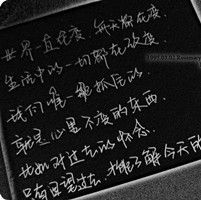 世界一直在变，每天都在变，
生活中的一切都在改变。
我们唯一能抓住的
就是心里不变的东西。
比如对过去的怀念。
只有回望过去，才能了解今天的